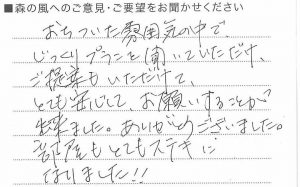 ■森の風へのご意見・ご要望をお聞かせください
おちついた雰囲気の中で、
じっくりプランを聞いていただけ、
ご提案もいただけて、
とても安心して、お願いすることが
出来ました。ありがとうございました。
部屋もとてもステキに
なりました!!